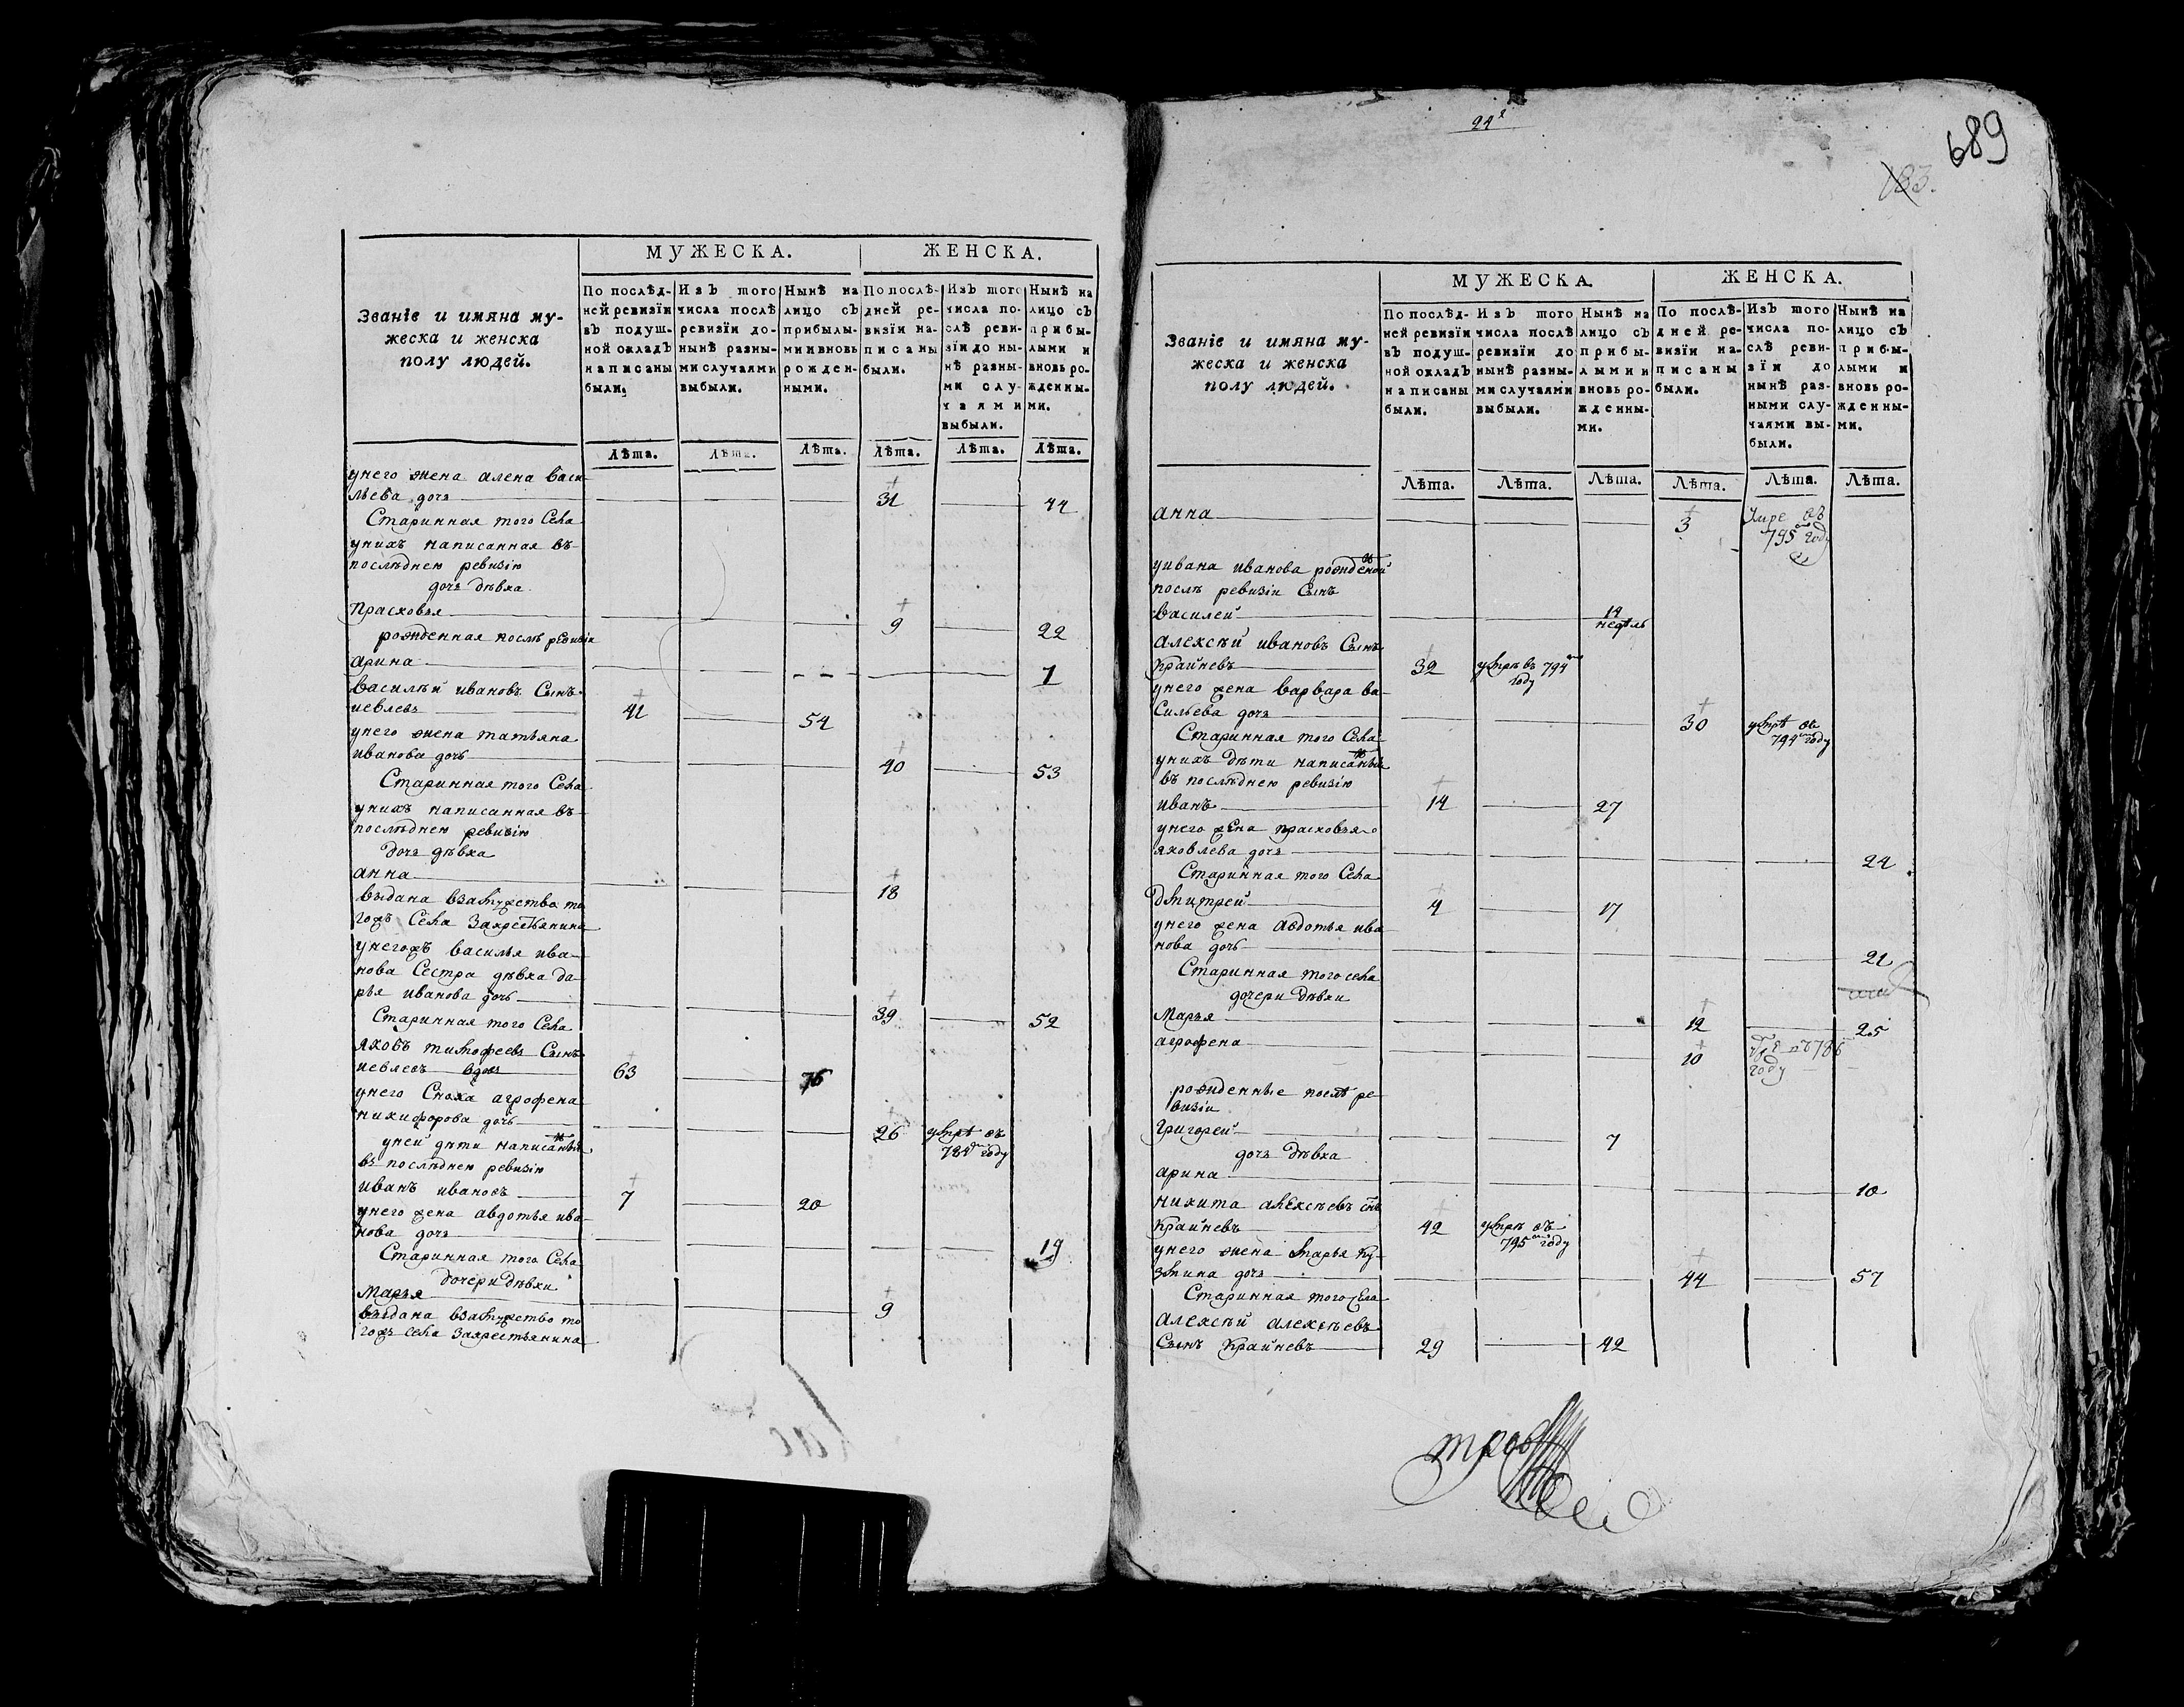 МУЖЕСКА. ЖЕНСКА.
Званїе и имяна му-
жеска и женска
полу людей.
По послѣд-
ней ревизїи
въ подуш-
ной окладъ
написаны
были.
Изъ того
числа послѣ
ревизїи до-
нынѣ разны-
ми случаями
выбыли.
Нынѣ на
лицо съ
прибылы-
ми и вновь
рожден-
ными.
По послѣ-
дней ре-
визїи на-
писаны
были.
Изъ того
числа по-
слѣ реви-
зїи до ны-
нѣ разны-
ми слу-
чаями
выбыли.
Нынѣ на
лицо съ
прибы-
лыми и
вновь ро-
жденны-
ми.
Лѣта. Лѣта. Лѣта. Лѣта. Лѣта. Лѣта.
унего жена алена васи-
льева дочь 31 44
Старинная того Села
унихъ написанная въ
послѣднею ревизію
дочь дѣвка
Прасковья 9 22
рожденная послѣ ревизіи
арина 1
василѣй ивановъ Сынъ
иевлевъ 41 54
унего жена татьяна
иванова дочь 40 53
Старинная того Села
унихъ написанная въ
послѣднею ревизію
дочь дѣвка
анна 18
выдана взамужство то
гожъ Села Закрестьянина
унегожъ василья ива-
нова Сестра дѣвка да-
рья иванова дочь 39 52
Старинная того Села
яковъ тимофеевъ Сынъ
иевлевъ вдовъ 63 76
унего Сноха агрофена
никифорова дочь 26 умрѣ въ
784м году
уней дѣти написаныя
въ послѣднею ревизію
иванъ ивановъ 7 20
унего жена авдотья ива-
нова дочь 19
Старинная того Села
дочери дѣвки
Марья 9
выдана взамужство то
гожъ села закрестьянина
24
689
183.
МУЖЕСКА. ЖЕНСКА.
Званїе и имяна му-
жеска и женска
полу людей.
По послѣд-
ней ревизїи
въ подуш-
ной окладъ
написаны
были.
Изъ того
числа послѣ
ревизїи до
нынѣ разны-
ми случаями
выбыли.
Нынѣ на
лицо съ
прибы-
лыми и
вновь ро-
жденны-
ми.
По послѣ-
дней ре-
визїи на-
писаны
были.
Изъ того
числа по-
слѣ реви-
зїи до
нынѣ раз-
ными слу-
чаями вы-
были.
Нынѣ на
лицо съ
прибы-
лыми и
вновь ро-
жденны-
ми.
Лѣта. Лѣта. Лѣта. Лѣта. Лѣта. Лѣта.
анна 3 Умре въ
795 году
уивана иванова рожденой
послѣ ревизіи Сынъ
василей 14
недѣль
алексѣй ивановъ Сынъ
крайневъ 32 умрѣ въ 794м
году
унего жена варвара ва-
сильева дочь 30 умрѣ въ
794м году
Старинная того Села
унихъ дѣти написаныя
въ послѣднею ревизію
иванъ 14 27
унего жена прасковья
яковлева дочь 24
Старинная того Села
дмитрей 4 17
унего жена авдотья ива
нова дочь 21
Старинная того села
дочери дѣвки
Марья 12 25
агрофена 10 786
году
рожденные послѣ ре-
визіи
Григорей 7
дочь дѣвка
арина 10
никита алексѣевъ Сынъ
крайневъ 42 умрѣ въ
795м году
унего жена марья ку-
змина дочь 44 57
Старинная того Села
алексѣй алексѣевъ
Сынъ крайневъ 29 42